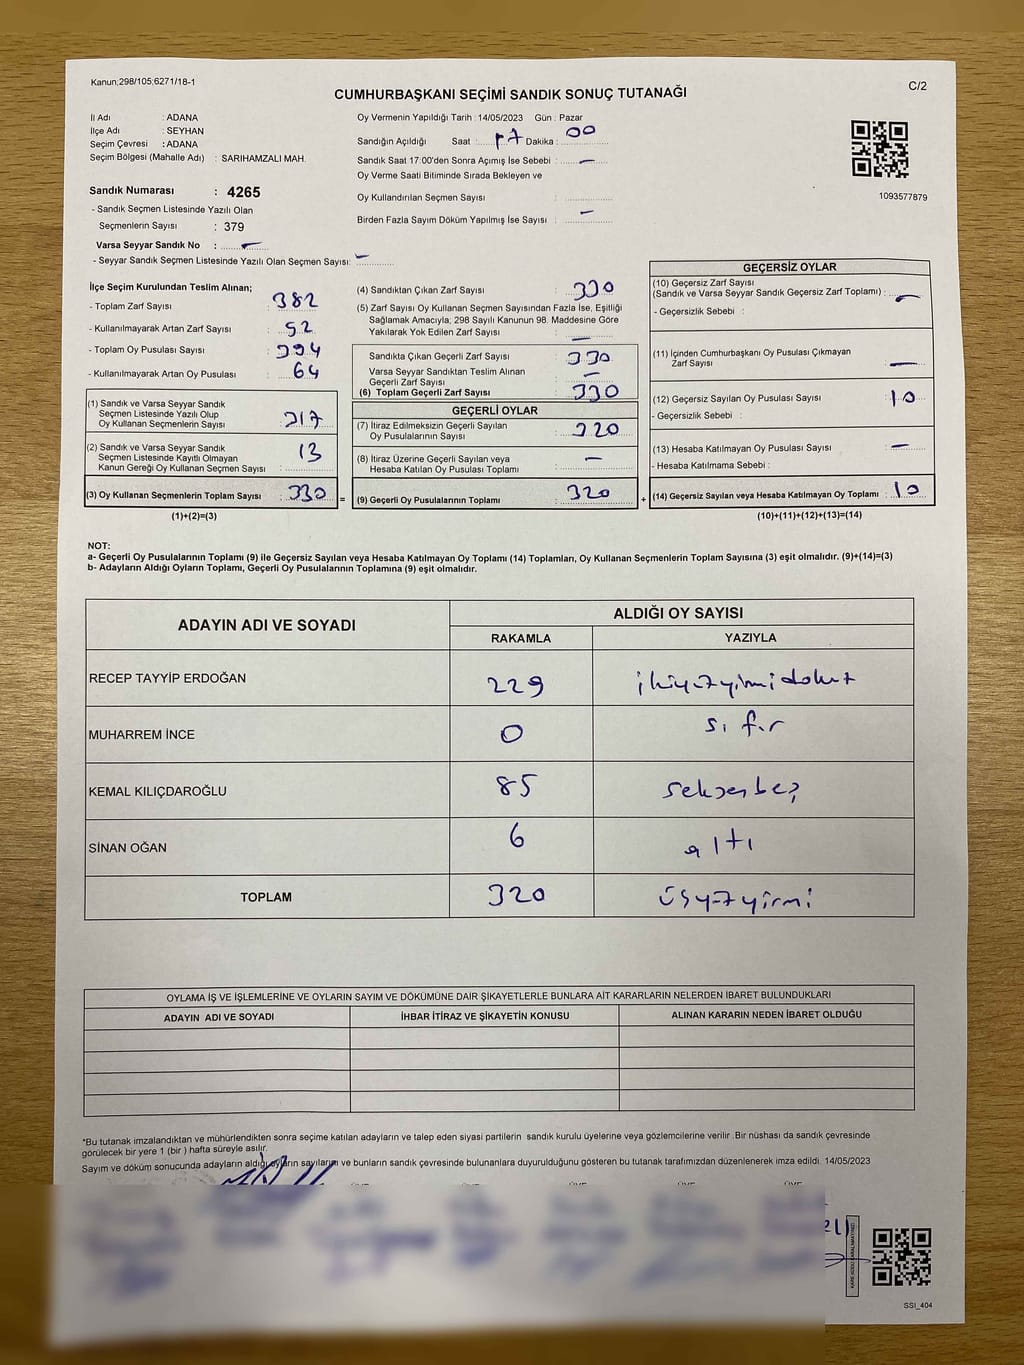 Kanun;298/105;6271/18-1
C/2
CUMHURBAŞKANI SEÇİMİ SANDIK SONUÇ TUTANAĞI
İl Adı : ADANA
İlçe Adı : SEYHAN
Seçim Çevresi : ADANA
Seçim Bölgesi (Mahalle Adı) : SARIHAMZALI MAH.
Oy Vermenin Yapıldığı Tarih : 14/05/2023 Gün : Pazar
Sandığın Açıldığı Saat : 17 Dakika : 00
Sandık Saat 17:00'den Sonra Açımış İse Sebebi : –
Oy Verme Saati Bitiminde Sırada Bekleyen ve
Oy Kullandırılan Seçmen Sayısı
Birden Fazla Sayım Döküm Yapılmış İse Sayısı : –
1093577879
Sandık Numarası : 4265
- Sandık Seçmen Listesinde Yazılı Olan
Seçmenlerin Sayısı : 379
Varsa Seyyar Sandık No : –
- Seyyar Sandık Seçmen Listesinde Yazılı Olan Seçmen Sayısı: –
İlçe Seçim Kurulundan Teslim Alınan;
- Toplam Zarf Sayısı : 382
- Kullanılmayarak Artan Zarf Sayısı : 52
- Toplam Oy Pusulası Sayısı : 394
- Kullanılmayarak Artan Oy Pusulası : 64
(1) Sandık ve Varsa Seyyar Sandık
Seçmen Listesinde Yazılı Olup
Oy Kullanan Seçmenlerin Sayısı : 317
(2) Sandık ve Varsa Seyyar Sandık
Seçmen Listesinde Kayıtlı Olmayan
Kanun Gereği Oy Kullanan Seçmen Sayısı : 13
(3) Oy Kullanan Seçmenlerin Toplam Sayısı : 330
(1)+(2)=(3)
(4) Sandıktan Çıkan Zarf Sayısı : 330
(5) Zarf Sayısı Oy Kullanan Seçmen Sayısından Fazla İse, Eşitliği
Sağlamak Amacıyla; 298 Sayılı Kanunun 98. Maddesine Göre
Yakılarak Yok Edilen Zarf Sayısı : –
Sandıkta Çıkan Geçerli Zarf Sayısı : 330
Varsa Seyyar Sandıktan Teslim Alınan
Geçerli Zarf Sayısı : –
(6) Toplam Geçerli Zarf Sayısı : 330
GEÇERLİ OYLAR
(7) İtiraz Edilmeksizin Geçerli Sayılan
Oy Pusulalarının Sayısı : 320
(8) İtiraz Üzerine Geçerli Sayılan veya
Hesaba Katılan Oy Pusulası Toplamı : –
= (9) Geçerli Oy Pusulalarının Toplamı : 320
GEÇERSİZ OYLAR
(10) Geçersiz Zarf Sayısı
(Sandık ve Varsa Seyyar Sandık Geçersiz Zarf Toplamı) : –
- Geçersizlik Sebebi :
(11) İçinden Cumhurbaşkanı Oy Pusulası Çıkmayan
Zarf Sayısı : –
(12) Geçersiz Sayılan Oy Pusulası Sayısı : 10
- Geçersizlik Sebebi :
(13) Hesaba Katılmayan Oy Pusulası Sayısı : –
- Hesaba Katılmama Sebebi :
+ (14) Geçersiz Sayılan veya Hesaba Katılmayan Oy Toplamı : 10
(10)+(11)+(12)+(13)=(14)
NOT:
a- Geçerli Oy Pusulalarının Toplamı (9) ile Geçersiz Sayılan veya Hesaba Katılmayan Oy Toplamı (14) Toplamları, Oy Kullanan Seçmenlerin Toplam Sayısına (3) eşit olmalıdır. (9)+(14)=(3)
b- Adayların Aldığı Oyların Toplamı, Geçerli Oy Pusulalarının Toplamına (9) eşit olmalıdır.
ADAYIN ADI VE SOYADI ALDIĞI OY SAYISI
RAKAMLA YAZIYLA
RECEP TAYYİP ERDOĞAN 229 ikiyüzyirmidokuz
MUHARREM İNCE 0 sıfır
KEMAL KILIÇDAROĞLU 85 seksenbeş
SİNAN OĞAN 6 altı
TOPLAM 320 üçyüzyirmi
OYLAMA İŞ VE İŞLEMLERİNE VE OYLARIN SAYIM VE DÖKÜMÜNE DAİR ŞİKAYETLERLE BUNLARA AİT KARARLARIN NELERDEN İBARET BULUNDUKLARI
ADAYIN ADI VE SOYADI İHBAR İTİRAZ VE ŞİKAYETİN KONUSU ALINAN KARARIN NEDEN İBARET OLDUĞU
*Bu tutanak imzalandıktan ve mühürlendikten sonra seçime katılan adayların ve talep eden siyasi partilerin sandık kurulu üyelerine veya gözlemcilerine verilir .Bir nüshası da sandık çevresinde
görülecek bir yere 1 (bir ) hafta süreyle asılır.
Sayım ve döküm sonucunda adayların aldığı oyların sayılarını ve bunların sandık çevresinde bulunanlara duyurulduğunu gösteren bu tutanak tarafımızdan düzenlenerek imza edildi. 14/05/2023
SSI_404